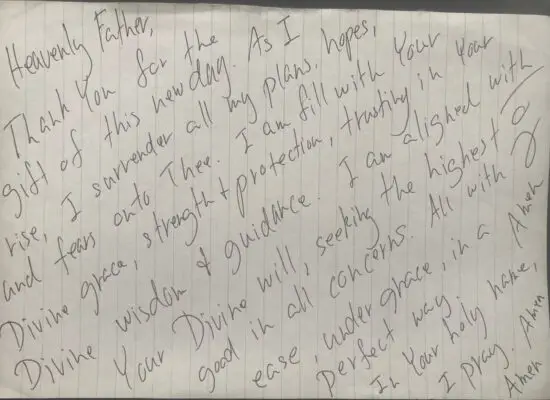 Heavenly Father,
Thank You for the
gift of this new day. As I
rise, I surrender all my plans, hopes,
and fears onto Thee. I am fill with Your
Divine grace, strength + protection, trusting in Your
Divine wisdom & guidance. I am aligned with
Your Divine will, seeking the highest
good in all concerns. All with
ease, under grace, in a
perfect way.
In Your holy name,
I pray. Amen
Amen
Amen